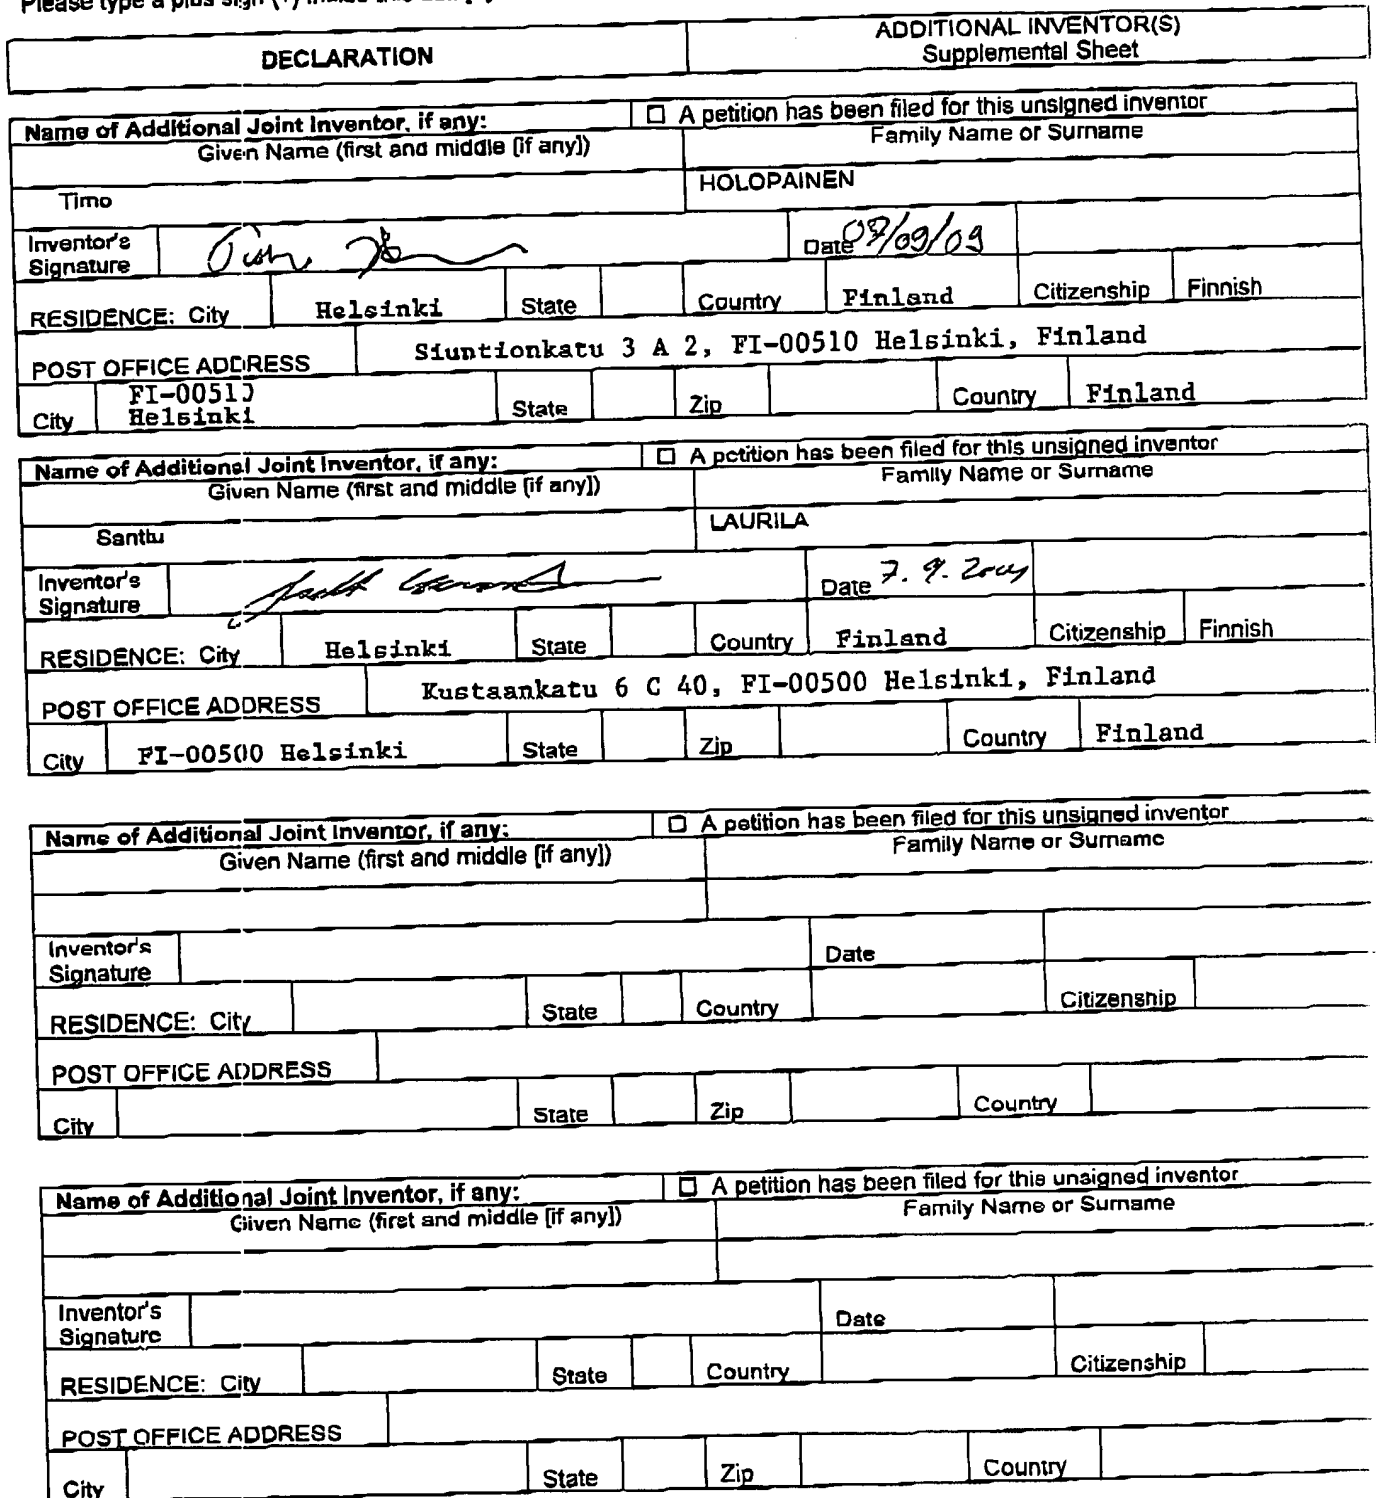 Please type a plus sign (+) inside this
DECLARATION ADDITIONAL INVENTOR(S)
Supplemental Sheet
Name of Additional Joint Inventor, if any: □ A petition has been filed for this unsigned inventor
Given Name (first and middle [if any]) Family Name or Surname
Timo HOLOPAINEN
Inventor's
Signature Date 07/09/09
RESIDENCE: City Helsinki State Country Finland Citizenship Finnish
POST OFFICE ADDRESS Siuntionkatu 3 A 2, FI-00510 Helsinki, Finland
City FI-00510
Helsinki State Zip Country Finland
Name of Additional Joint Inventor, if any: □ A petition has been filed for this unsigned inventor
Given Name (first and middle [if any]) Family Name or Surname
Santtu LAURILA
Inventor's
Signature Date 7. 9.
RESIDENCE: City Helsinki State Country Finland Citizenship Finnish
POST OFFICE ADDRESS Kustaankatu 6 C 40, FI-00500 Helsinki, Finland
City FI-00500 Helsinki State Zip Country Finland
Name of Additional Joint Inventor, if any: □ A petition has been filed for this unsigned inventor
Given Name (first and middle [if any]) Family Name or Surname
Inventor's
Signature Date
RESIDENCE: City State Country Citizenship
POST OFFICE ADDRESS
City State Zip Country
Name of Additional Joint Inventor, if any: □ A petition has been filed for this unsigned inventor
Given Name (first and middle [if any]) Family Name or Surname
Inventor's
Signature Date
RESIDENCE: City State Country Citizenship
POST OFFICE ADDRESS
City State Zip Country